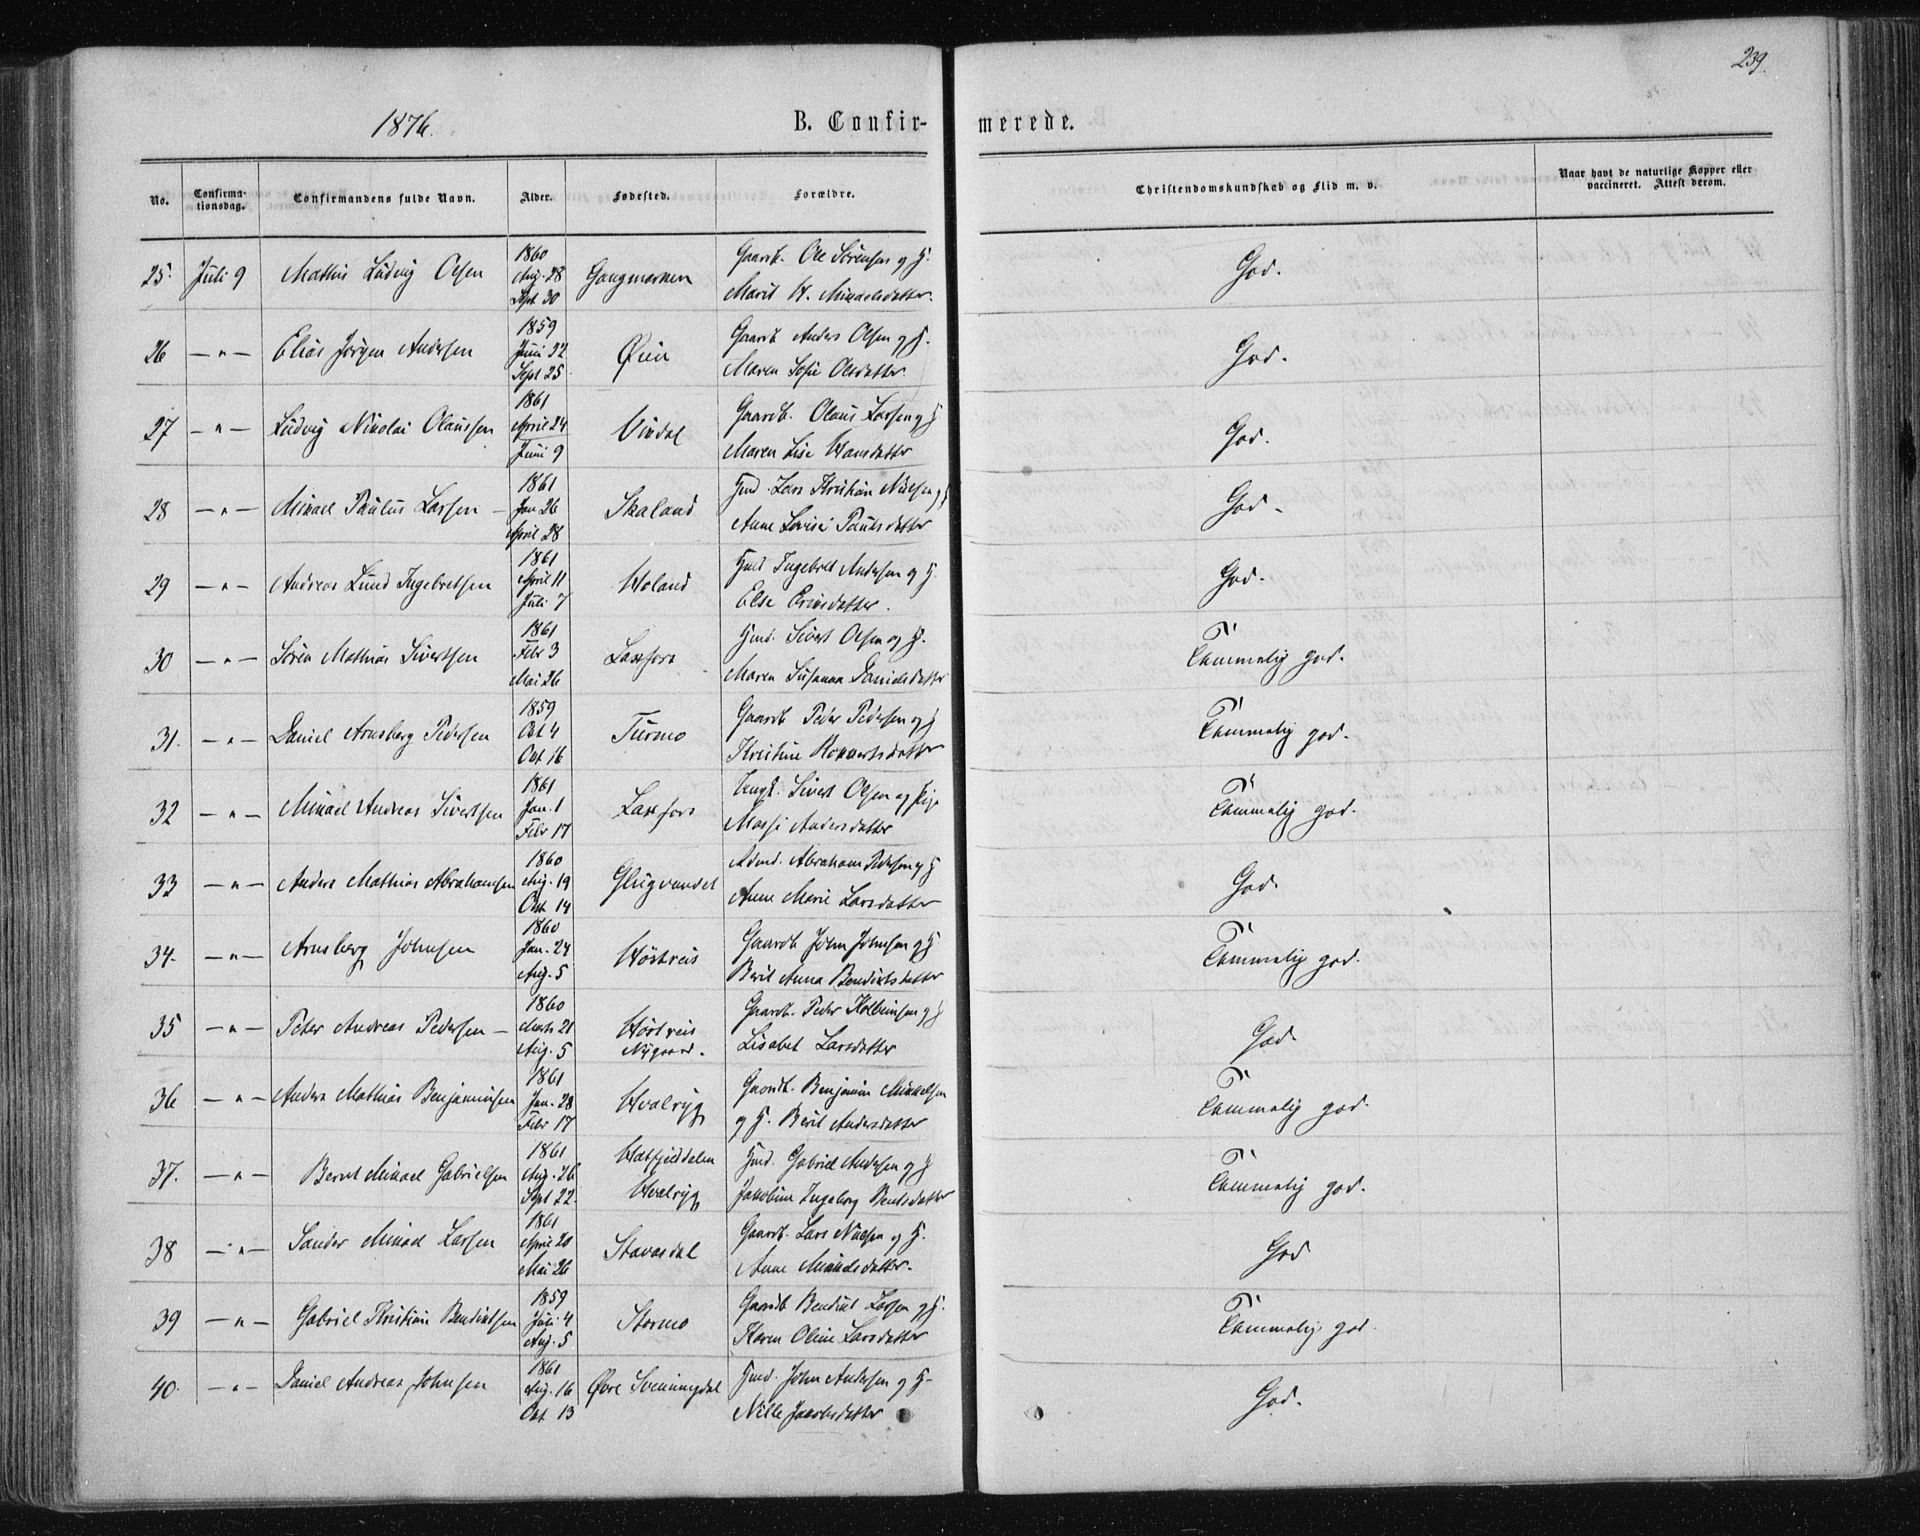 239.
1876.
B. Confir-
merede.
No.
Confirma-
tionsdag.
Confirmandens fulde Navn.
Alder.
Fødested.
Forældre.
Christendomskundskab og Flid m. v.
Naar havt de naturlige Kopper eller
vaccineret. Attest derom.
25. Juli 9 Mathis Ludvig Olsen 1860 Aug. 28 Sept 30 Gangmarken Gaardb. Ole Sørensen og H.
Marit H. Mikaelsdatter. God.
26 — " — Elias Jørgen Andersen 1859 Juni 22 Sept 25 Øien Gaardb Anders Olsen og H.
Maren Sofie Olsdatter God.
27 — " — Ludvig Nikolai Olaussen 1861 April 24 Juni 9 Vindal Gaardb. Olaus Larsen og H
Maren Lise Hansdatter God.
28 — " — Mikael Paulus Larsen — 1861 Jan 26 April 28 Skaland Hmd. Lars Kristian Nielsen og H
Anne Lovise Paulsdatter God.
29 — " — Andreas Lund Ingebretsen 1861 April 11 Juli 7 Holand Hmd Ingebret Andersen og H.
Else Ersdatter. God.
30 — " — Søren Mathias Sivertsen 1861 Febr 3 Mai 26 Laxfors Hmd. Sivert Olsen og H.
Maren Susanna Danielsdatter Temmelig god.
31. — " — Daniel Arnsberg Pedersen 1859 Oct 4 Oct 16 Turmo Gaardb Peder Pedersen og H
Kristine datter Temmelig god.
32 — " — Mikael Andreas Sivertsen 1861 Jan. 1 Febr 17 Laxfors Ungk. Sivert Olsen og Pige
Massi Andersdatter Temmelig god.
33 — " — Anders Mathias Abrahamsen 1860 Aug. 19 Oct 14 Glugvandet Abraham Pedersen og H
Anne Marie Larsdatter God.
34. — " — Arnsberg Johnsen 1860 Jan. 24 Aug. 5 Hörtreis Gaardb. John Johnsen og H
Beret Anna Bendiktsdatter Temmelig god.
35 — " — Peter Andreas Pedersen — 1860 Marts 21 Aug. 5 Hörtreis Nygaard. Gaardb. Peder Kolbeinsen og H
Lisabet Larsdatter God.
36 — " — Anders Mathias Benjaminsen 1861 Jan. 28 Febr 17 Hvalryg Gaardb. Benjamin Mikkelsen
og H. Berit Andersdatter Temmelig god.
37. — " — Bernt Mikael Gabrielsen 1861 Aug. 26 Sept 22. Hatfjelddalen Hvalryg Hmd. Gabriel Andersen og H
Jakobine Ingeborg Bentsdatter Temmelig god.
38 — " — Sander Mikael Larsen 1861 April 20 Mai 26 Stavasdal Gaardb. Lars Nielsen og H.
Anne Mikkelsdatter. God
39 — " — Gabriel Kristian Bendiktsen 1859 Juli 4 Aug. 5 Stormo Gaardb Bendikt Larsen og H.
Karen Oline Larsdatter Temmelig god.
40. — " — Daniel Andreas Johnsen 1861 Aug. 16 Oct. 13 Øvre Svenningdal Hmd. John Andersen og H.
Nille Jakobsdatter God.